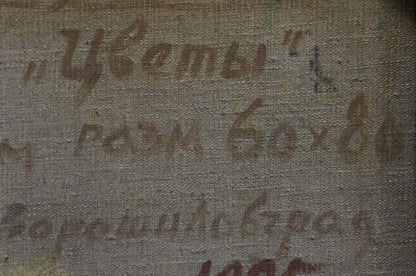 „Цветы"
м разм 60х80
Ворошиловград